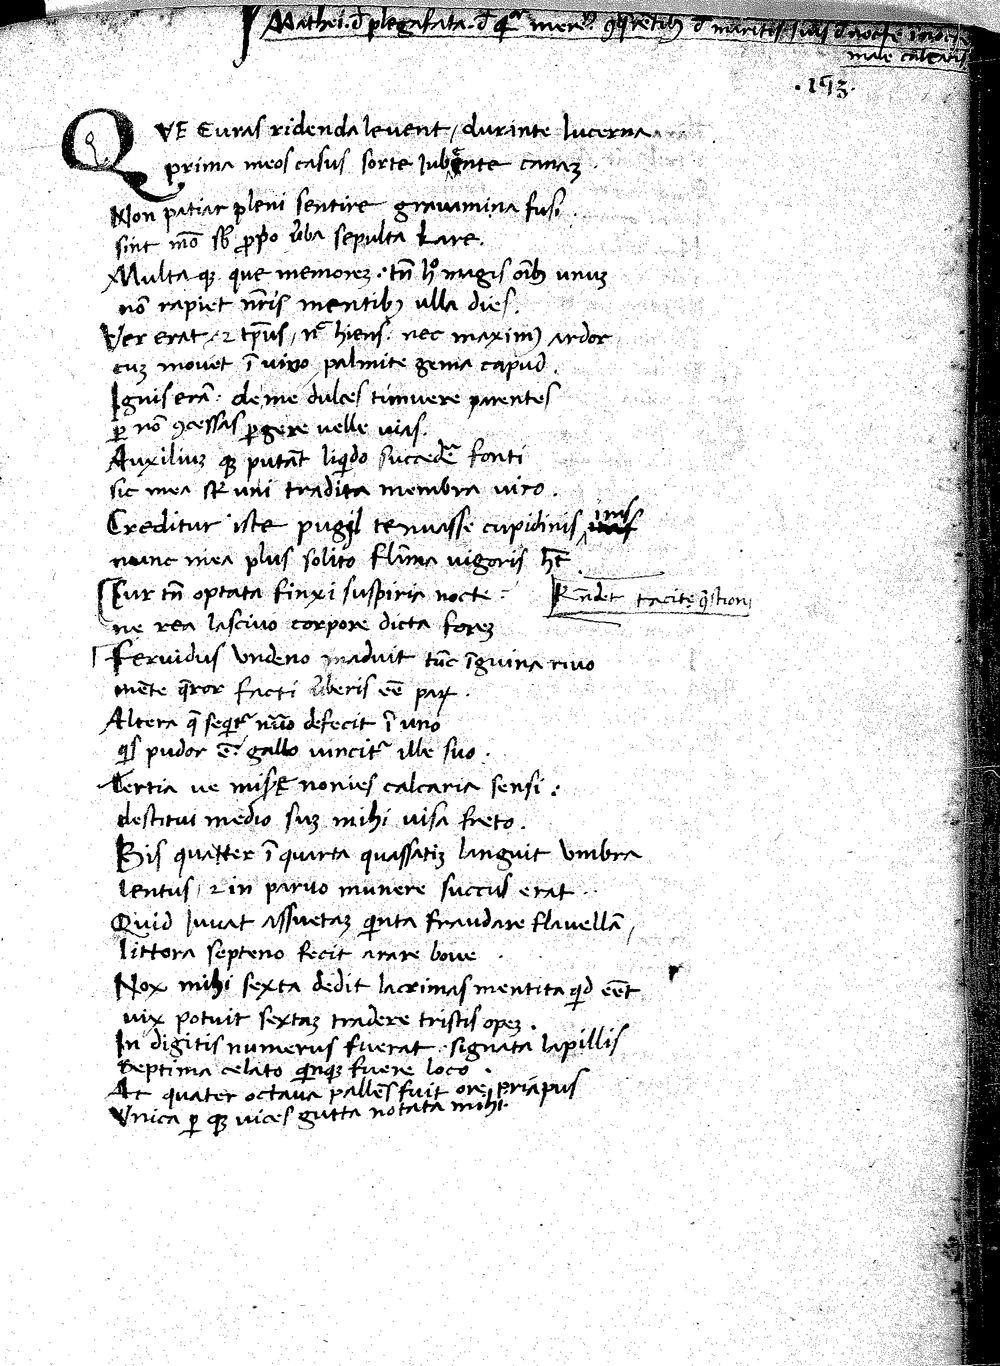 Mathei. d̄ plegafata. d̄ q̄r mere. 9q̄rētib9 d̄ maritis suis d̄ nocte
male calcatis
.193.
QVE Curas ridenda levent, durinte lucerna
prima meos casus sorte Jubente canaz.
Non patiar pleni sentire gravamina fusi.
sint mō sb̄ ꝓpo v̄ba sepulta Lare.
Multa qz que memorez. tn̄ ho magis oīb9 unuz
nō rapiet nr̄is mentib9 ulla dies.
Ver erat, ⁊ tp̄us, nc̄ hiens. nec maxim9 ardor
cuz movet ī vivo palmite gema capud.
Ignis erā. de me dulces timuere parentes
ꝑ nō 9cessas ꝑgere velle vias.
Auxiliuz qz putāt liqido succedē fonti
sic mea sūt uni tradita membra viro.
Creditur iste pugil tenuasse cupidinis imis
nunc mea plus solito flīma vigoris h̄t.
Cur tn̄ optata finxi suspiria nocte:
Rn̄det tacitę q̄stioni
ne rea lascivo corpore dicta forez
Fervidus Vndeno maduit tūc īguina rivo
mēte q̄ror facti v̄beris eē pay.
Altera q̄ seqitr nūo defecit ī uno
qis pudor ē. gallo vincitr ille suo.
Tertia ve mis nonies calcaria sensi:
destitui medio suz mihi visa freto.
Bis quatter ī quarta quassatiz languit Vmbra
lentus, ⁊ in parvo munere succus erat.
Quid Juvat assuetaz qinta fraudare flavellā,
littora septeno fecit arare bove.
Nox mihi sexta dedit lacrimas mentita qid eēt
vix potuit sextaz tradere tristis opez.
In digitis numerus fuerat. signata lapillis
Septima celato qinqz fuere loco.
At quater octava pallēs fuit ore priapus
Vnica ꝑ qz vices gutta notata mihi.